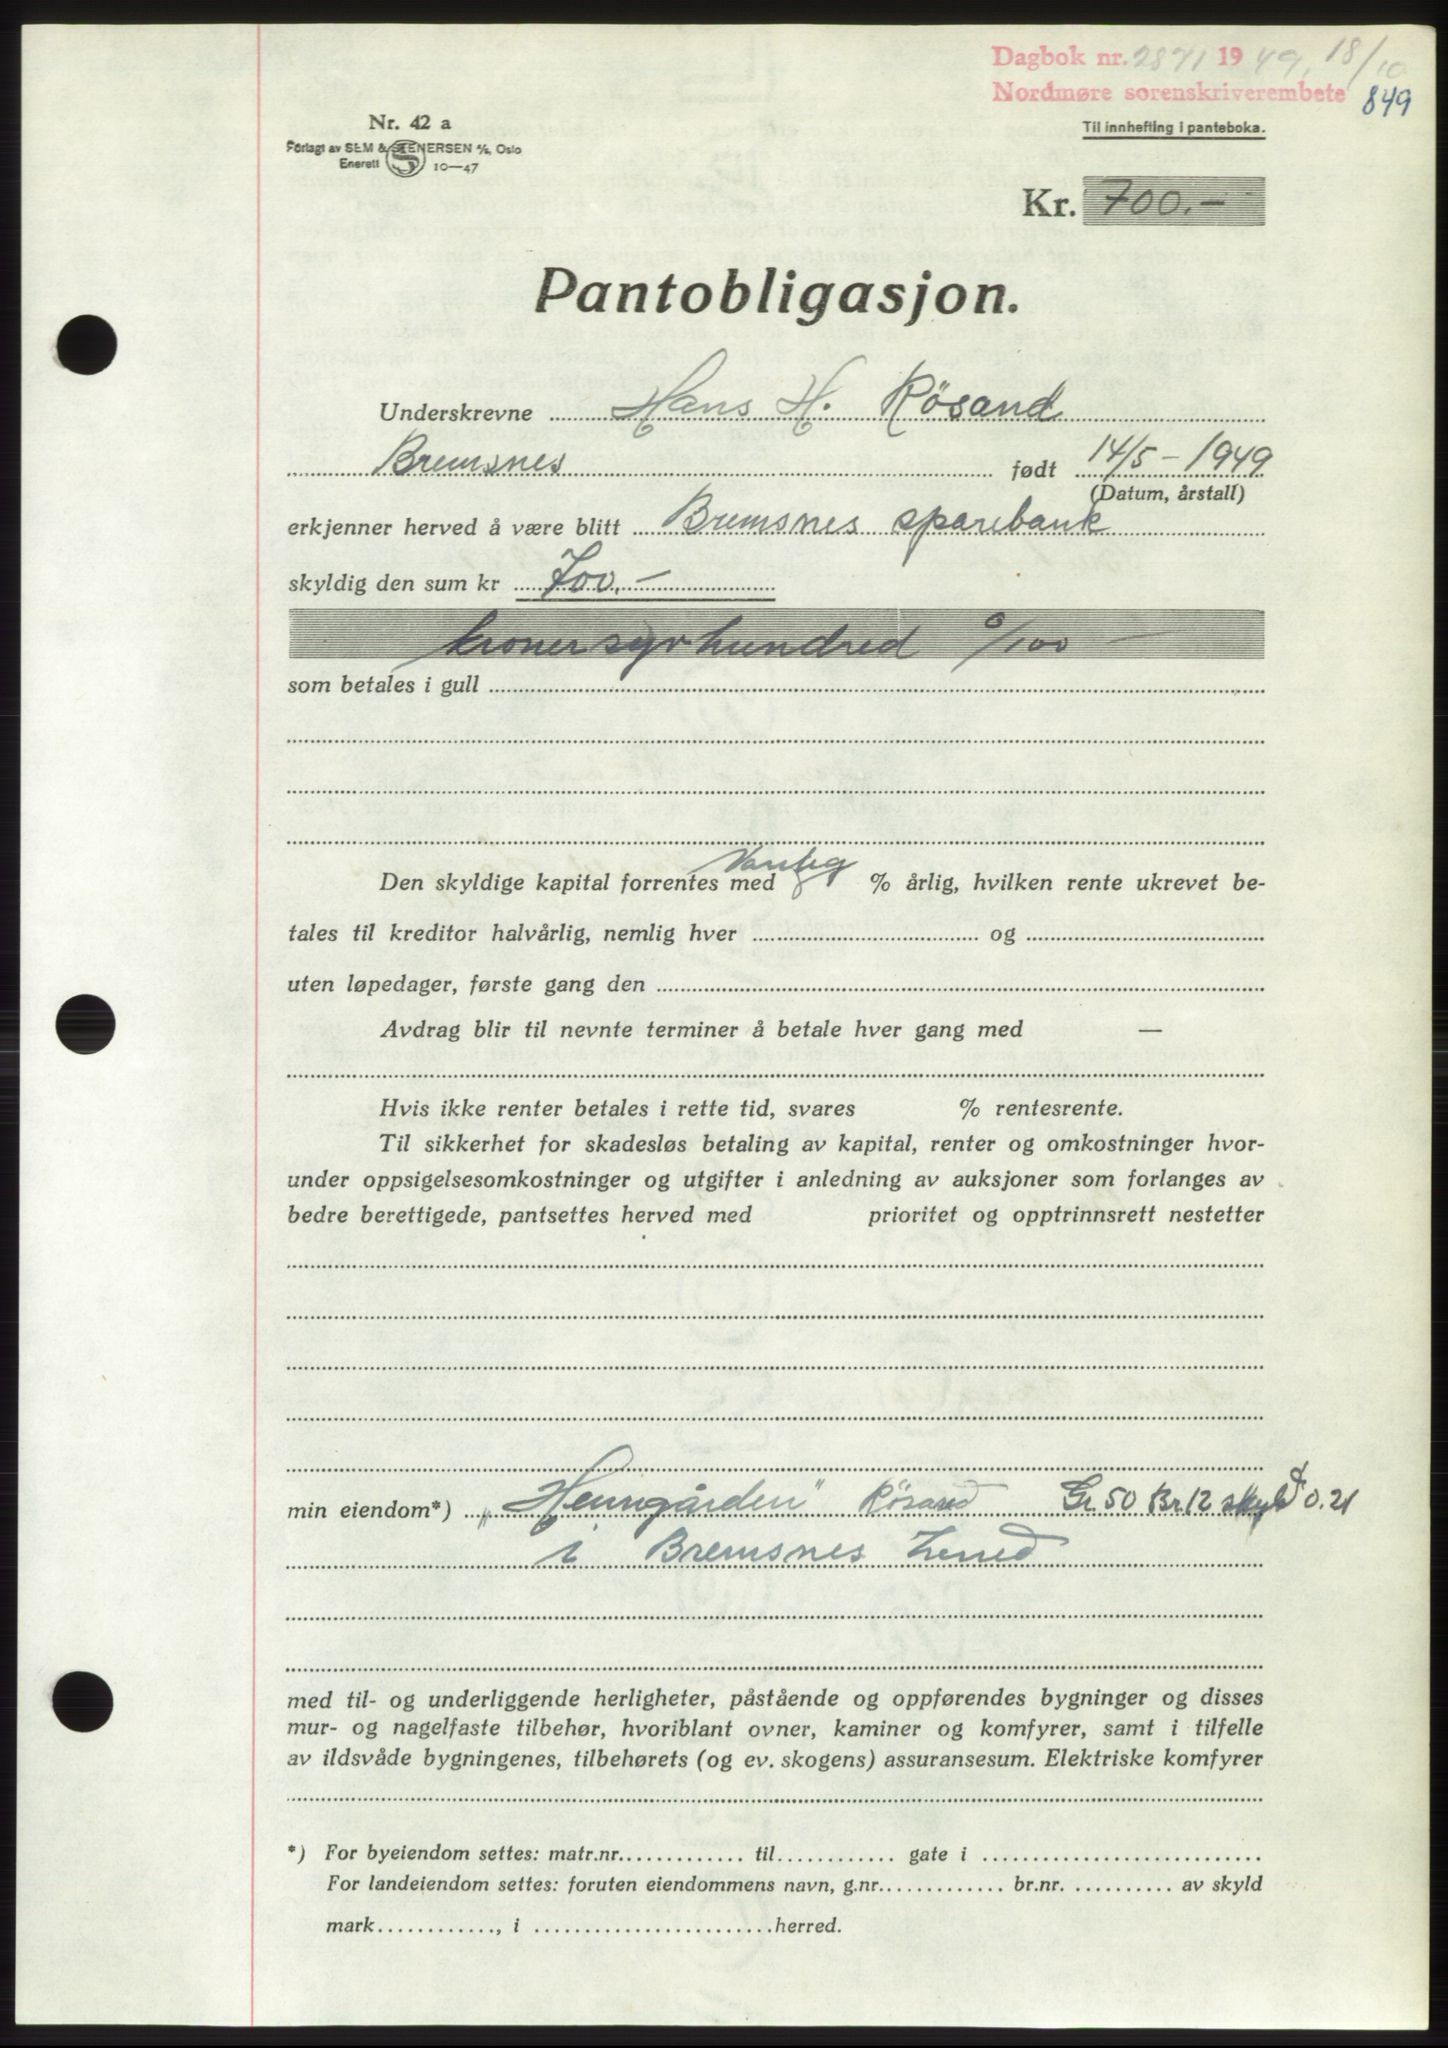 Dagbok nr. 2871 1949, 18/10
Nordmøre sorenskriverembete 849
Nr. 42 a
Forlagt av SEM & STENERSEN A/S, Oslo
Enerett S 10—47
Til innhefting i panteboka.
Kr. 700.-
Pantobligasjon.
Underskrevne Hans H. Røsand
Bremsnes født 14/5 - 1949
(Datum, årstall)
erkjenner herved å være blitt Bremsnes sparebank
skyldig den sum kr 700.-
kroner syv hundred 0/100
som betales i gull
Den skyldige kapital forrentes med Vanleg % årlig, hvilken rente ukrevet be-
tales til kreditor halvårlig, nemlig hver og
uten løpedager, første gang den
Avdrag blir til nevnte terminer å betale hver gang med —
Hvis ikke renter betales i rette tid, svares % rentesrente.
Til sikkerhet for skadesløs betaling av kapital, renter og omkostninger hvor-
under oppsigelsesomkostninger og utgifter i anledning av auksjoner som forlanges av
bedre berettigede, pantsettes herved med prioritet og opptrinnsrett nestetter
min eiendom*) „Hemngården" Røsand Gr. 50 Br. 12 skyld 0.21
i Bremsnes herred
med til- og underliggende herligheter, påstående og oppførendes bygninger og disses
mur- og nagelfaste tilbehør, hvoriblant ovner, kaminer og komfyrer, samt i tilfelle
av ildsvåde bygningenes, tilbehørets (og ev. skogens) assuransesum. Elektriske komfyrer
*) For byeiendom settes: matr.nr. til gate i
For landeiendom settes: foruten eiendommens navn, g.nr. br.nr. av skyld
mark , i herred.